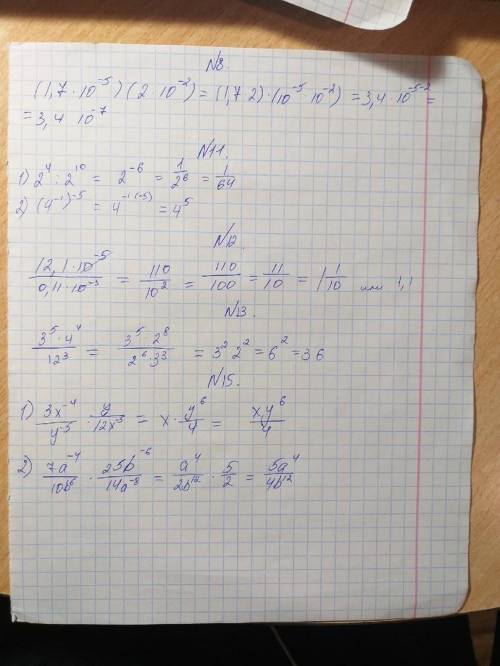 №8.
(1,7 · 10⁻⁵) (2 · 10⁻²) = (1,7 · 2) · (10⁻⁵ · 10⁻²) = 3,4 · 10⁻⁵⁻² =
= 3,4 · 10⁻⁷
№11.
1) 2⁴ : 2¹⁰ = 2⁻⁶ = 1/2⁶ = 1/64
2) (4⁻¹)⁻⁵ = 4⁻¹·⁽⁻⁵⁾ = 4⁵
№12.
12,1·10⁻⁵/0,11·10⁻³ = 110/10² = 110/100 = 11/10 = 1 1/10 или 1,1
№13.
3⁵·4⁴/12³ = 3⁵·2⁸/2⁶·3³ = 3²·2² = 6² = 36
№15.
1) 3x⁻⁴/y⁻⁵ · y/12x⁻³ = x · y⁶/4 = xy⁶/4
2) 7a⁻⁴/10b⁶ · 25b⁻⁶/14a⁻⁸ = a⁴/2b¹² · 5/2 = 5a⁴/4b¹²